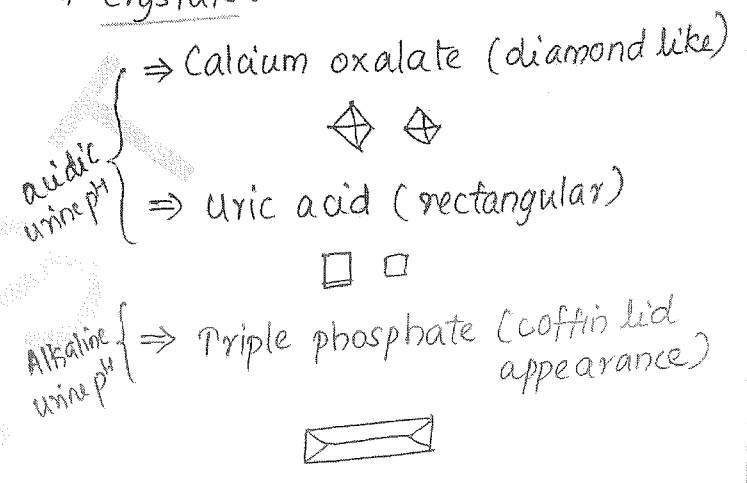 Crystals:
acidic urine pH
⇒ Calcium oxalate (diamond like)
⇒ Uric acid (rectangular)
Alkaline urine pH
⇒ Triple phosphate (coffin lid
appearance)